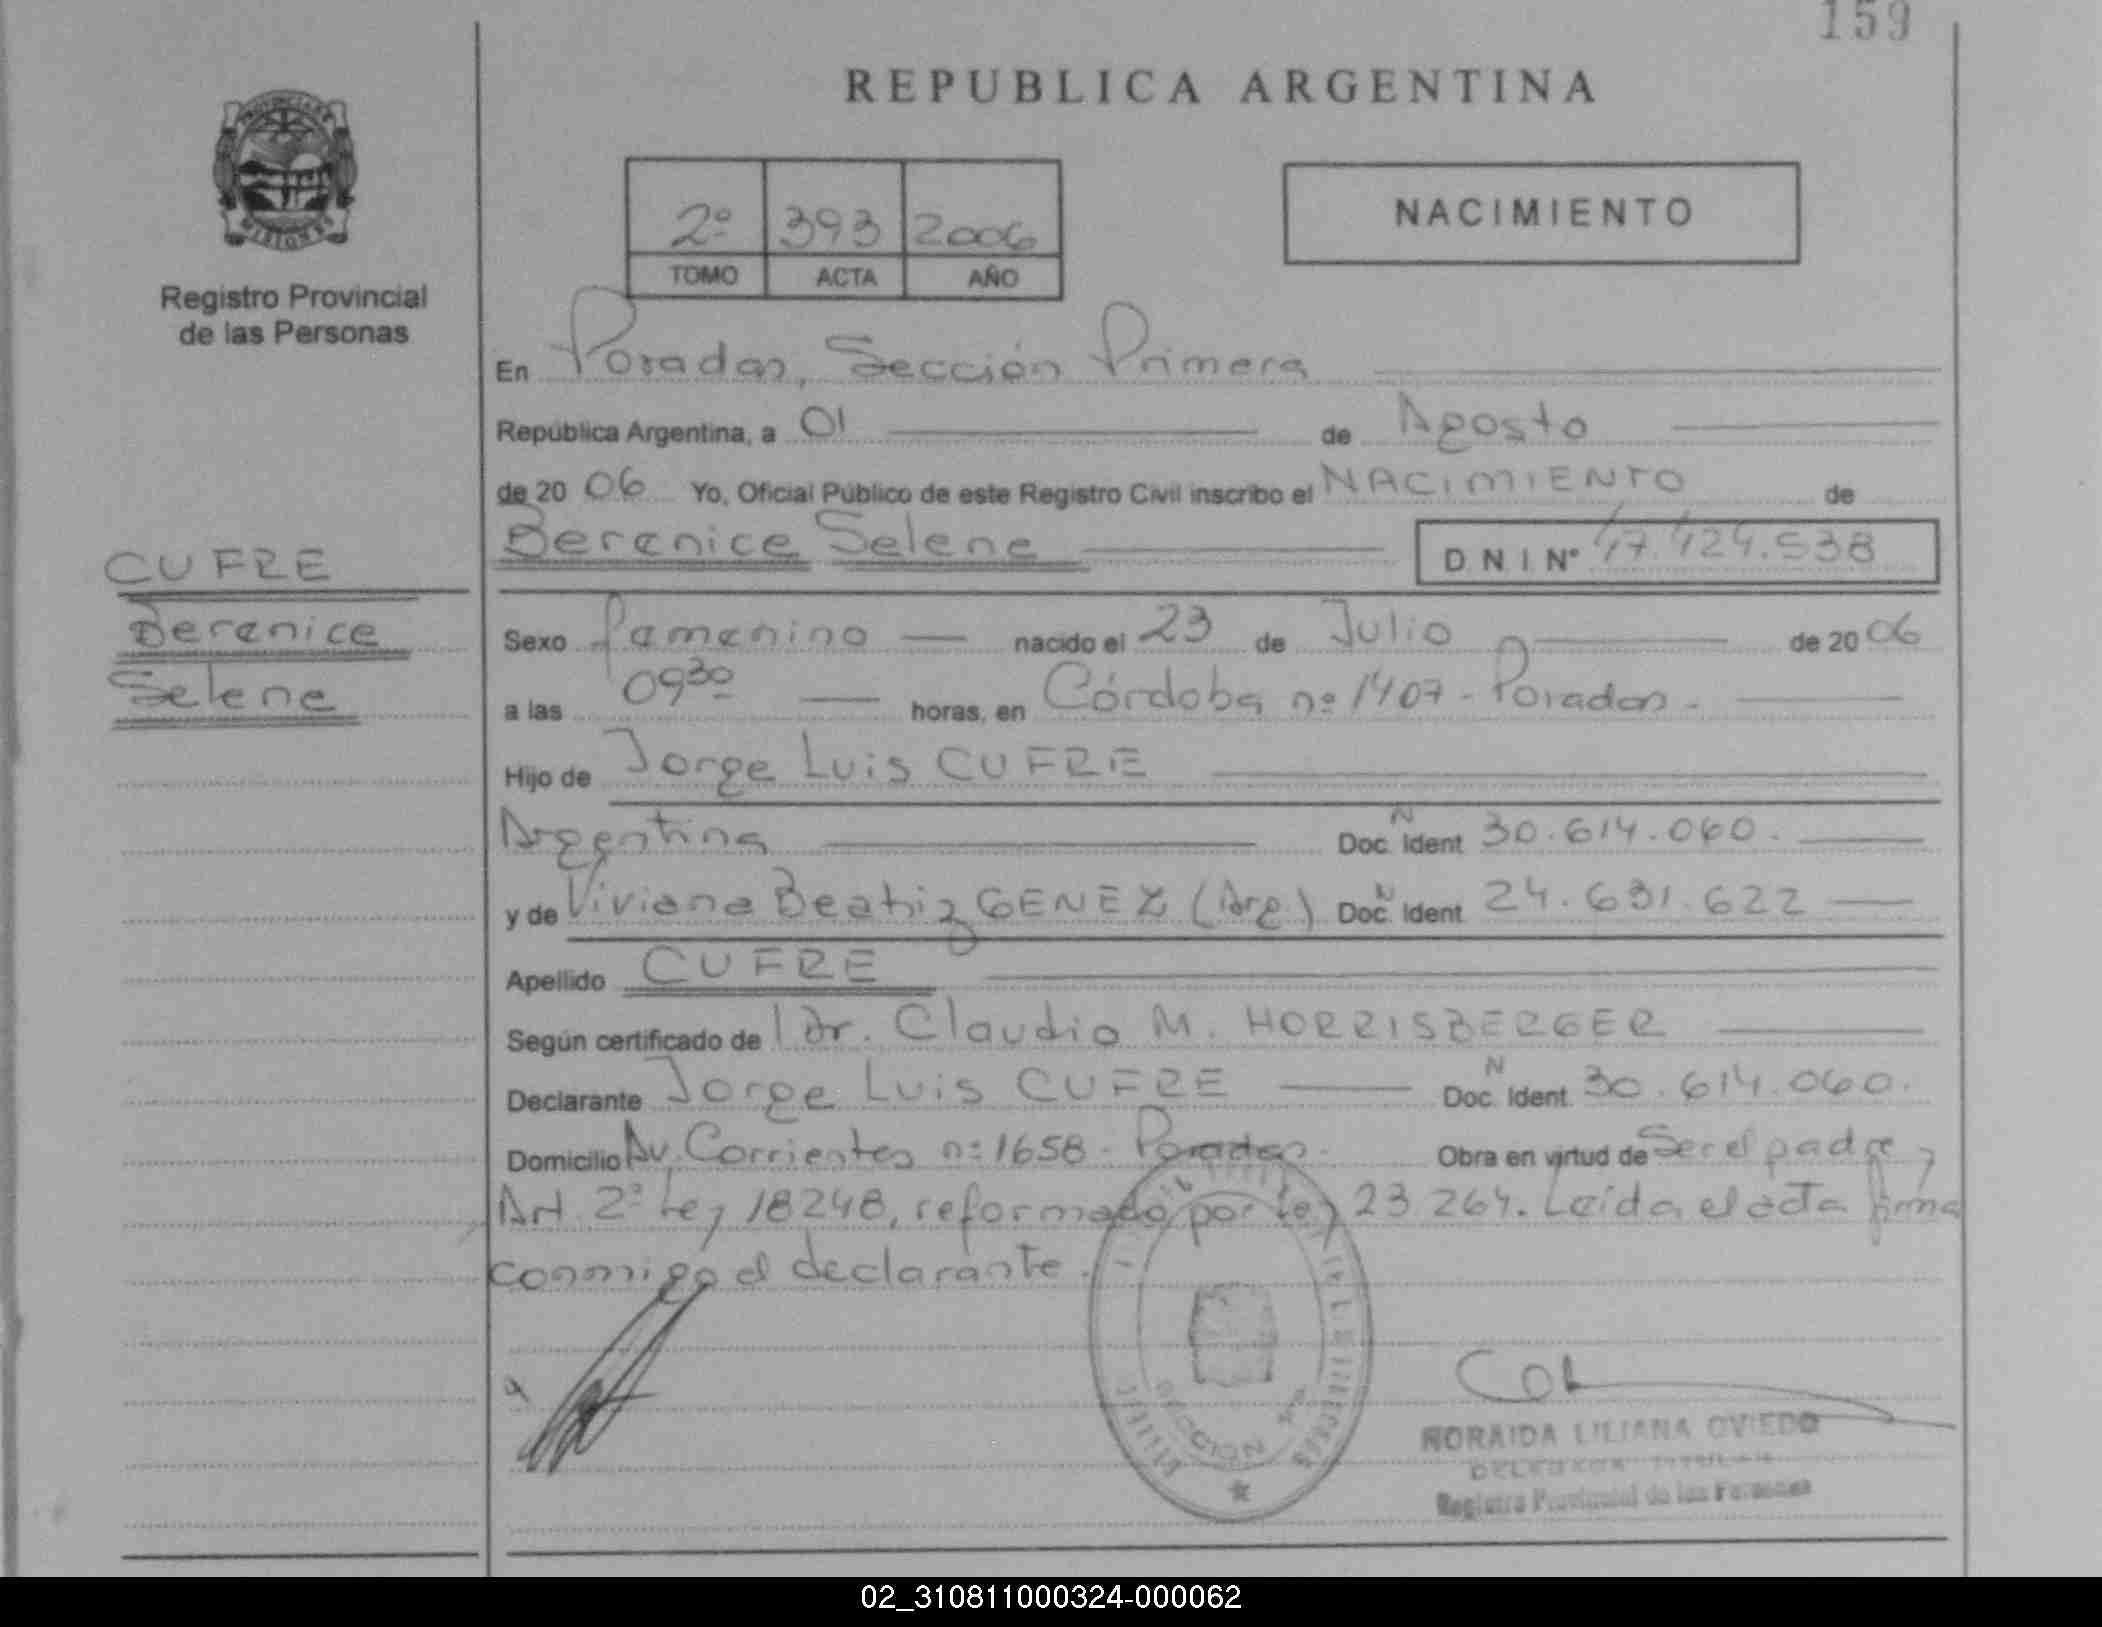 159
REPUBLICA ARGENTINA
PROVINCIA DE
MISIONES
Registro Provincial
de las Personas
2º 393 2006
TOMO ACTA AÑO
NACIMIENTO
En Posadas, Sección Primera
República Argentina, a 01 de Agosto
de 20 06 Yo, Oficial Público de este Registro Civil inscribo el NACIMIENTO de
Berenice Selene D.N.I. Nº 47.424.538
CUFRE
Berenice
Selene
Sexo Femenino nacido el 23 de Julio de 20 06
a las 09 30 horas, en Córdoba nº 1407 - Posadas -
Hijo de Jorge Luis CUFRE
Argentina Doc. Ident N 30.614.060.
y de Viviana Beatriz GENEZ (Arg.) Doc. Ident N 24.631.622
Apellido CUFRE
Según certificado de Dr. Claudio M. HORRISBERGER
Declarante Jorge Luis CUFRE Doc. Ident. N 30.614.060.
Domicilio Av. Corrientes nº 1658 - Posadas. Obra en virtud de Ser el padre y
Art. 2º Ley 18248, reformado por Ley 23 264. Leída el acta firma
conmigo el declarante.
SECCION
NORAIDA LILIANA OVIEDO
DELEGADA TITULAR
Registro Provincial de las Personas
02_310811000324-000062